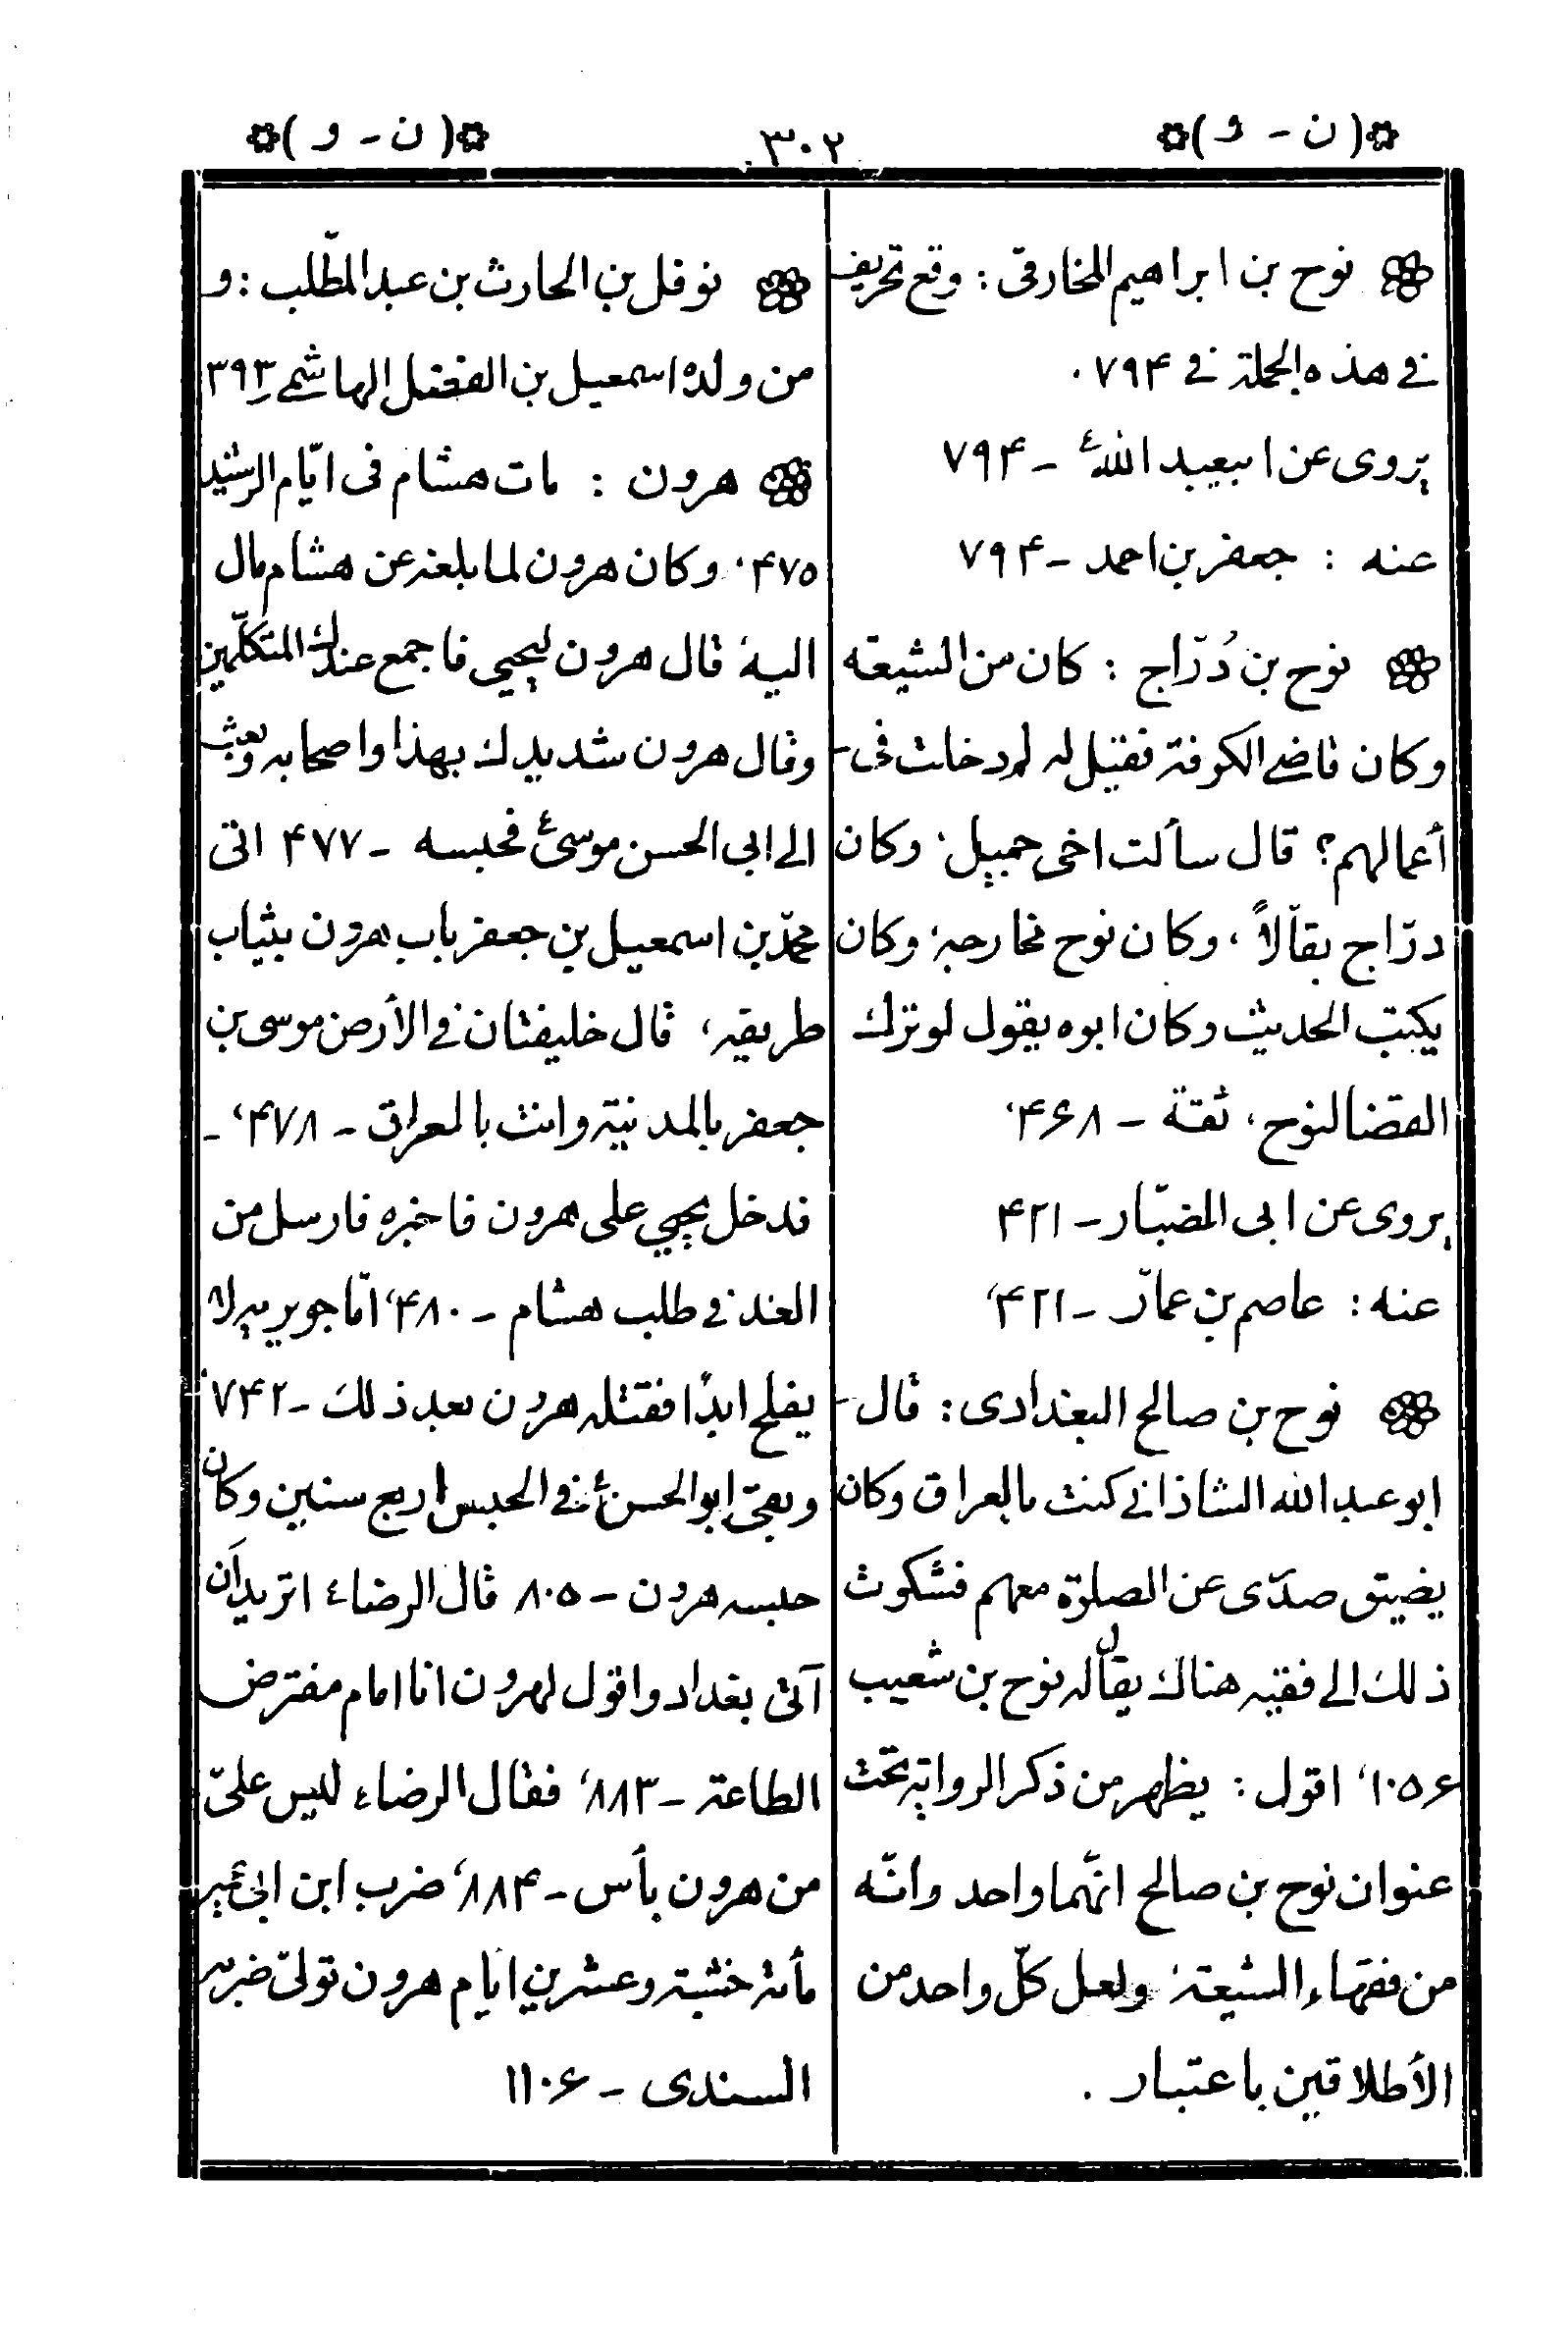 (ن - و)
٣٠٢
(ن - و)
نوح بن ابراهيم المخارقى : وقع تحريف
فى هذه الجملة فى ٧٩۴ .
يروى عن ابيعبد الله ؑ - ٧٩۴
عنه : جعفر بن احمد - ٧٩۴
نوح بن دُرّاج : كان من الشيعة
وكان قاضى الكوفة فقيل له لم دخلت فى
أعمالهم؟ قال سألت اخى جميل، وكان
درّاج بقّالاً، وكان نوح مخارجه، وكان
يكتب الحديث وكان ابوه يقول لو ترك
القضا لنوح، ثقة - ۴۶٨،
يروى عن ابى المضبّار - ۴٢١
عنه : عاصم بن عمّار - ۴٢١،
نوح بن صالح البغدادى : قال
ابو عبد الله الشاذانى كنت بالعراق وكان
يضيق صدرى عن الصلوة معهم فشكوت
ذلك الى فقيه هناك يقال له نوح بن شعيب
١٠۵۶، اقول : يظهر من ذكر الرواية تحت
عنوان نوح بن صالح انّهما واحد وانّه
من فقهاء الشيعة، ولعل كلّ واحد من
الأطلاقين باعتبار .
نوفل بن الحارث بن عبد المطّلب : و
من ولده اسمعيل بن الفضل الهاشمى ٣٩٣
هرون : مات هشام فى ايّام الرشيد
۴٧۵، وكان هرون لما بلغه عن هشام مال
اليه، قال هرون ليحيى فاجمع عندك المتكلّمين
وقال هرون شديدك بهذا واصحابه وبعث
الى ابى الحسن موسى ؑ فحبسه - ۴٧٧ اتى
محمّد بن اسمعيل بن جعفر باب هرون بثياب
طريقه، قال خليفتان فى الأرض موسى بن
جعفر بالمدينة وانت بالعراق - ۴٧٨، -
فدخل يحيى على هرون فاخبره فارسل من
الغد فى طلب هشام - ۴٨٠، امّا جويريه لا
يفلح ابدًا فقتله هرون بعد ذلك - ٧۴٢،
وبقى ابو الحسن ؑ فى الحبس اربع سنين وكان
حبسه هرون - ٨٠۵ قال الرضا ؑ اتريد أن
آتى بغداد واقول لهرون انا امام مفترض
الطاعة - ٨٨٣، فقال الرضا ؑ ليس علىّ
من هرون بأس - ٨٨۴، ضرب ابن ابى عمير
مأة خشبة وعشرين ايام هرون تولّى ضربه
السندى - ١١٠۶